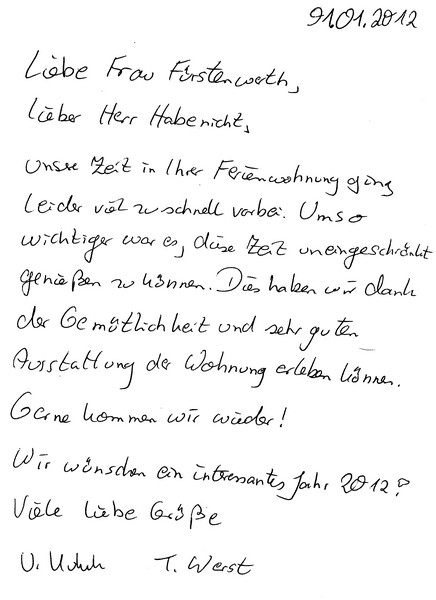 01.01.2012
Liebe Frau Fürstenwerth,
lieber Herr Habenicht,
unsere Zeit in Ihrer Ferienwohnung ging
leider viel zu schnell vorbei. Umso
wichtiger war es, diese Zeit uneingeschränkt
genießen zu können. Dies haben wir dank
der Gemütlichkeit und sehr guten
Ausstattung der Wohnung erleben können.
Gerne kommen wir wieder!
Wir wünschen ein interessantes Jahr 2012!
Viele liebe Grüße
T. Werst